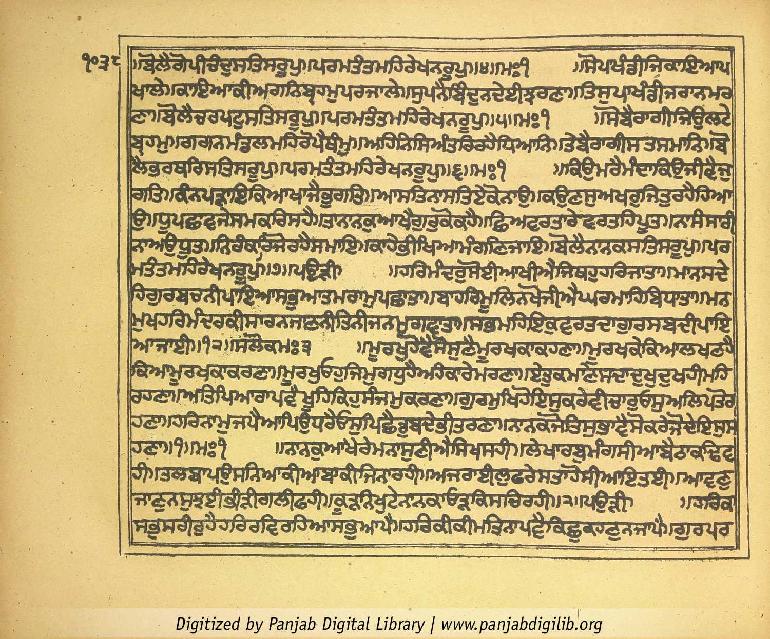 ੧੦੩੮
॥ਬੋਲੈਗੋਪੀਚੰਦੁਸਤਿਸਰੂਪੁ॥ਪਰਮਤੰਤਮਹਿਰੇਖਨਰੂਪੁ॥੪॥ਮਃ੧ ॥ਸੋਪਖੰਡੀਜਿਕਾਇਆਪ
ਖਾਲੇ॥ਕਾਇਆਕੀਅਗਨਿਬ੍ਰਹਮੁਪਰਜਾਲੇ॥ਸੁਪਨੈਬਿੰਦੁਨਦੇਈਝਰਣਾ॥ਤਿਸੁਪਾਖੰਡੀਜਰਾਨਮਰ
ਣਾ॥ਬੋਲੈਚਰਪਟੁਸਤਿਸਰੂਪੁ॥ਪਰਮਤੰਤਮਹਿਰੇਖਨਰੂਪੁ॥੫॥ਮਃ੧ ॥ਸੋਬੈਰਾਗੀਜਿਉਲਟੇ
ਬ੍ਰਹਮੁ॥ਗਗਨਮੰਡਲਮਹਿਰੋਪੈਥੰਮੁ॥ਅਹਿਨਿਸਿਅੰਤਰਿਰਹੈਧਿਆਨਿ॥ਤੇਬੈਰਾਗੀਸਤਸਮਾਨਿ॥ਬੋ
ਲੈਭਰਥਰਿਸਤਿਸਰੂਪੁ॥ਪਰਮਤੰਤਮਹਿਰੇਖਨਰੂਪੁ॥੬॥ਮਃ੧ ॥ਕਿਉਮਰੈਮੰਦਾਕਿਉਜੀਵੈਜੁ
ਗਤਿ॥ਕੰਨਪੜਾਇਕਿਆਖਾਜੈਭੁਗਤਿ॥ਆਸਤਿਨਾਸਤਿਏਕੋਨਾਉ॥ਕਉਣੁਸੁਅਖਰੁਜਿਤੁਰਹੈਹਿਆ
ਉ॥ਧੂਪਛਾਵਜੇਸਮਕਰਿਸਹੈ॥ਤਾਨਾਨਕੁਆਖੈਗੁਰੁਕੋਕਹੈ॥ਛਿਅਵਰਤਾਰੇਵਰਤਹਿਪੂਤ॥ਨਾਸੰਸਾਰੀ
ਨਾਅਉਧੂਤ॥ਨਿਰੰਕਾਰਿਜੋਰਹੈਸਮਾਇ॥ਕਾਹੇਭੀਖਿਆਮੰਗਣਿਜਾਇ॥ਬੋਲੈਨਾਨਕਸਤਿਸਰੂਪੁ॥ਪਰ
ਮਤੰਤਮਹਿਰੇਖਨਰੂਪੁ॥੭॥ਪਉੜੀ ॥ਹਰਿਮੰਦਰੁਸੋਈਆਖੀਐਜਿਥਹੁਹਰਿਜਾਤਾ॥ਮਾਨਸਦੇ
ਹਿਗੁਰਬਚਨੀਪਾਇਆਸਭੁਆਤਮਰਾਮੁਪਛਾਤਾ॥ਬਾਹਰਿਮੂਲਿਨਖੋਜੀਐਘਰਮਾਹਿਬਿਧਾਤਾ॥ਮਨ
ਮੁਖਹਰਿਮੰਦਰਕੀਸਾਰਨਜਾਣਨੀਤਿਨੀਜਨਮੁਗਵਾਤਾ॥ਸਭਮਹਿਇਕੁਵਰਤਦਾਗੁਰਸਬਦੀਪਾਇ
ਆਜਾਈ॥੧੨॥ਸਲੋਕਮਃ੩ ॥ਮੂਰਖੁਹੋਵੈਸੋਸੁਣੈਮੂਰਖਕਾਕਹਣਾ॥ਮੂਰਖਕੇਕਿਆਲਖਣਹੈ
ਕਿਆਮੂਰਖਕਾਕਰਣਾ॥ਮੂਰਖੁਓਹੁਜਿਮੁਗਧੁਹੈਅਹੰਕਾਰੇਮਰਣਾ॥ਏਤੁਕਮਾਣੈਸਦਾਦੁਖੁਦੁਖਹੀਮਹਿ
ਰਹਣਾ॥ਅਤਿਪਿਆਰਾਪਵੈਖੂਹਿਕਿਹੁਸੰਜਮੁਕਰਣਾ॥ਗੁਰਮੁਖਿਹੋਇਸੁਕਰੇਵੀਚਾਰੁਓਸੁਅਲਿਪਤੋਰ
ਹਣਾ॥ਹਰਿਨਾਮੁਜਪੈਆਪਿਉਧਰੈਓਸੁਪਿਛੈਡੁਬਦੇਭੀਤਰਣਾ॥ਨਾਨਕਜੋਤਿਸੁਭਾਵੈਸੋਕਰੇਜੋਦੇਇਸੁਸ
ਹਣਾ॥੧॥ਮਃ੧ ॥ਨਾਨਕੁਆਖੈਰੇਮਨਾਸੁਣੀਐਸਿਖਸਹੀ॥ਲੇਖਾਰਬੁਮੰਗੇਸੀਆਬੈਠਾਕਢਿਵ
ਹੀ॥ਤਲਬਾਪਉਸਨਿਆਕੀਆਬਾਕੀਜਿਨਾਰਹੀ॥ਅਜਰਾਈਲੁਫਰੇਸਤਾਹੋਸੀਆਇਤਈ॥ਆਵਣੁ
ਜਾਣੁਨਸੁਝਈਭੀੜੀਗਲੀਫਹੀ॥ਕੂੜਨਿਖੁਟੇਨਾਨਕਾਓੜਕਿਸਚਿਰਹੀ॥੨॥ਪਉੜੀ ॥ਹਰਿਕਾ
ਸਭੁਸਰੀਰੁਹੈਹਰਿਰਵਿਰਹਿਆਸਭੁਆਪੈ॥ਹਰਿਕੀਕੀਮਤਿਨਾਪਵੈਕਿਛੁਕਹਣੁਨਜਾਪੈ॥ਗੁਰਪਰ
Digitized by Panjab Digital Library | www.panjabdigilib.org